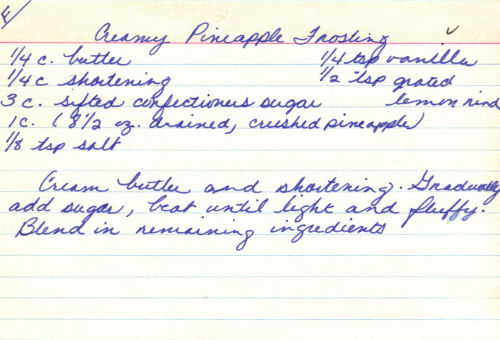 Creamy Pineapple Frosting
1/4 c. butter 1/4 tsp vanilla
1/4 c shortening 1/2 tsp grated
3 c. sifted confectioners sugar lemon rind
1c. (8 1/2 oz. drained, crushed pineapple)
1/8 tsp salt
Cream butter and shortening. Gradually
add sugar, beat until light and fluffy.
Blend in remaining ingredients